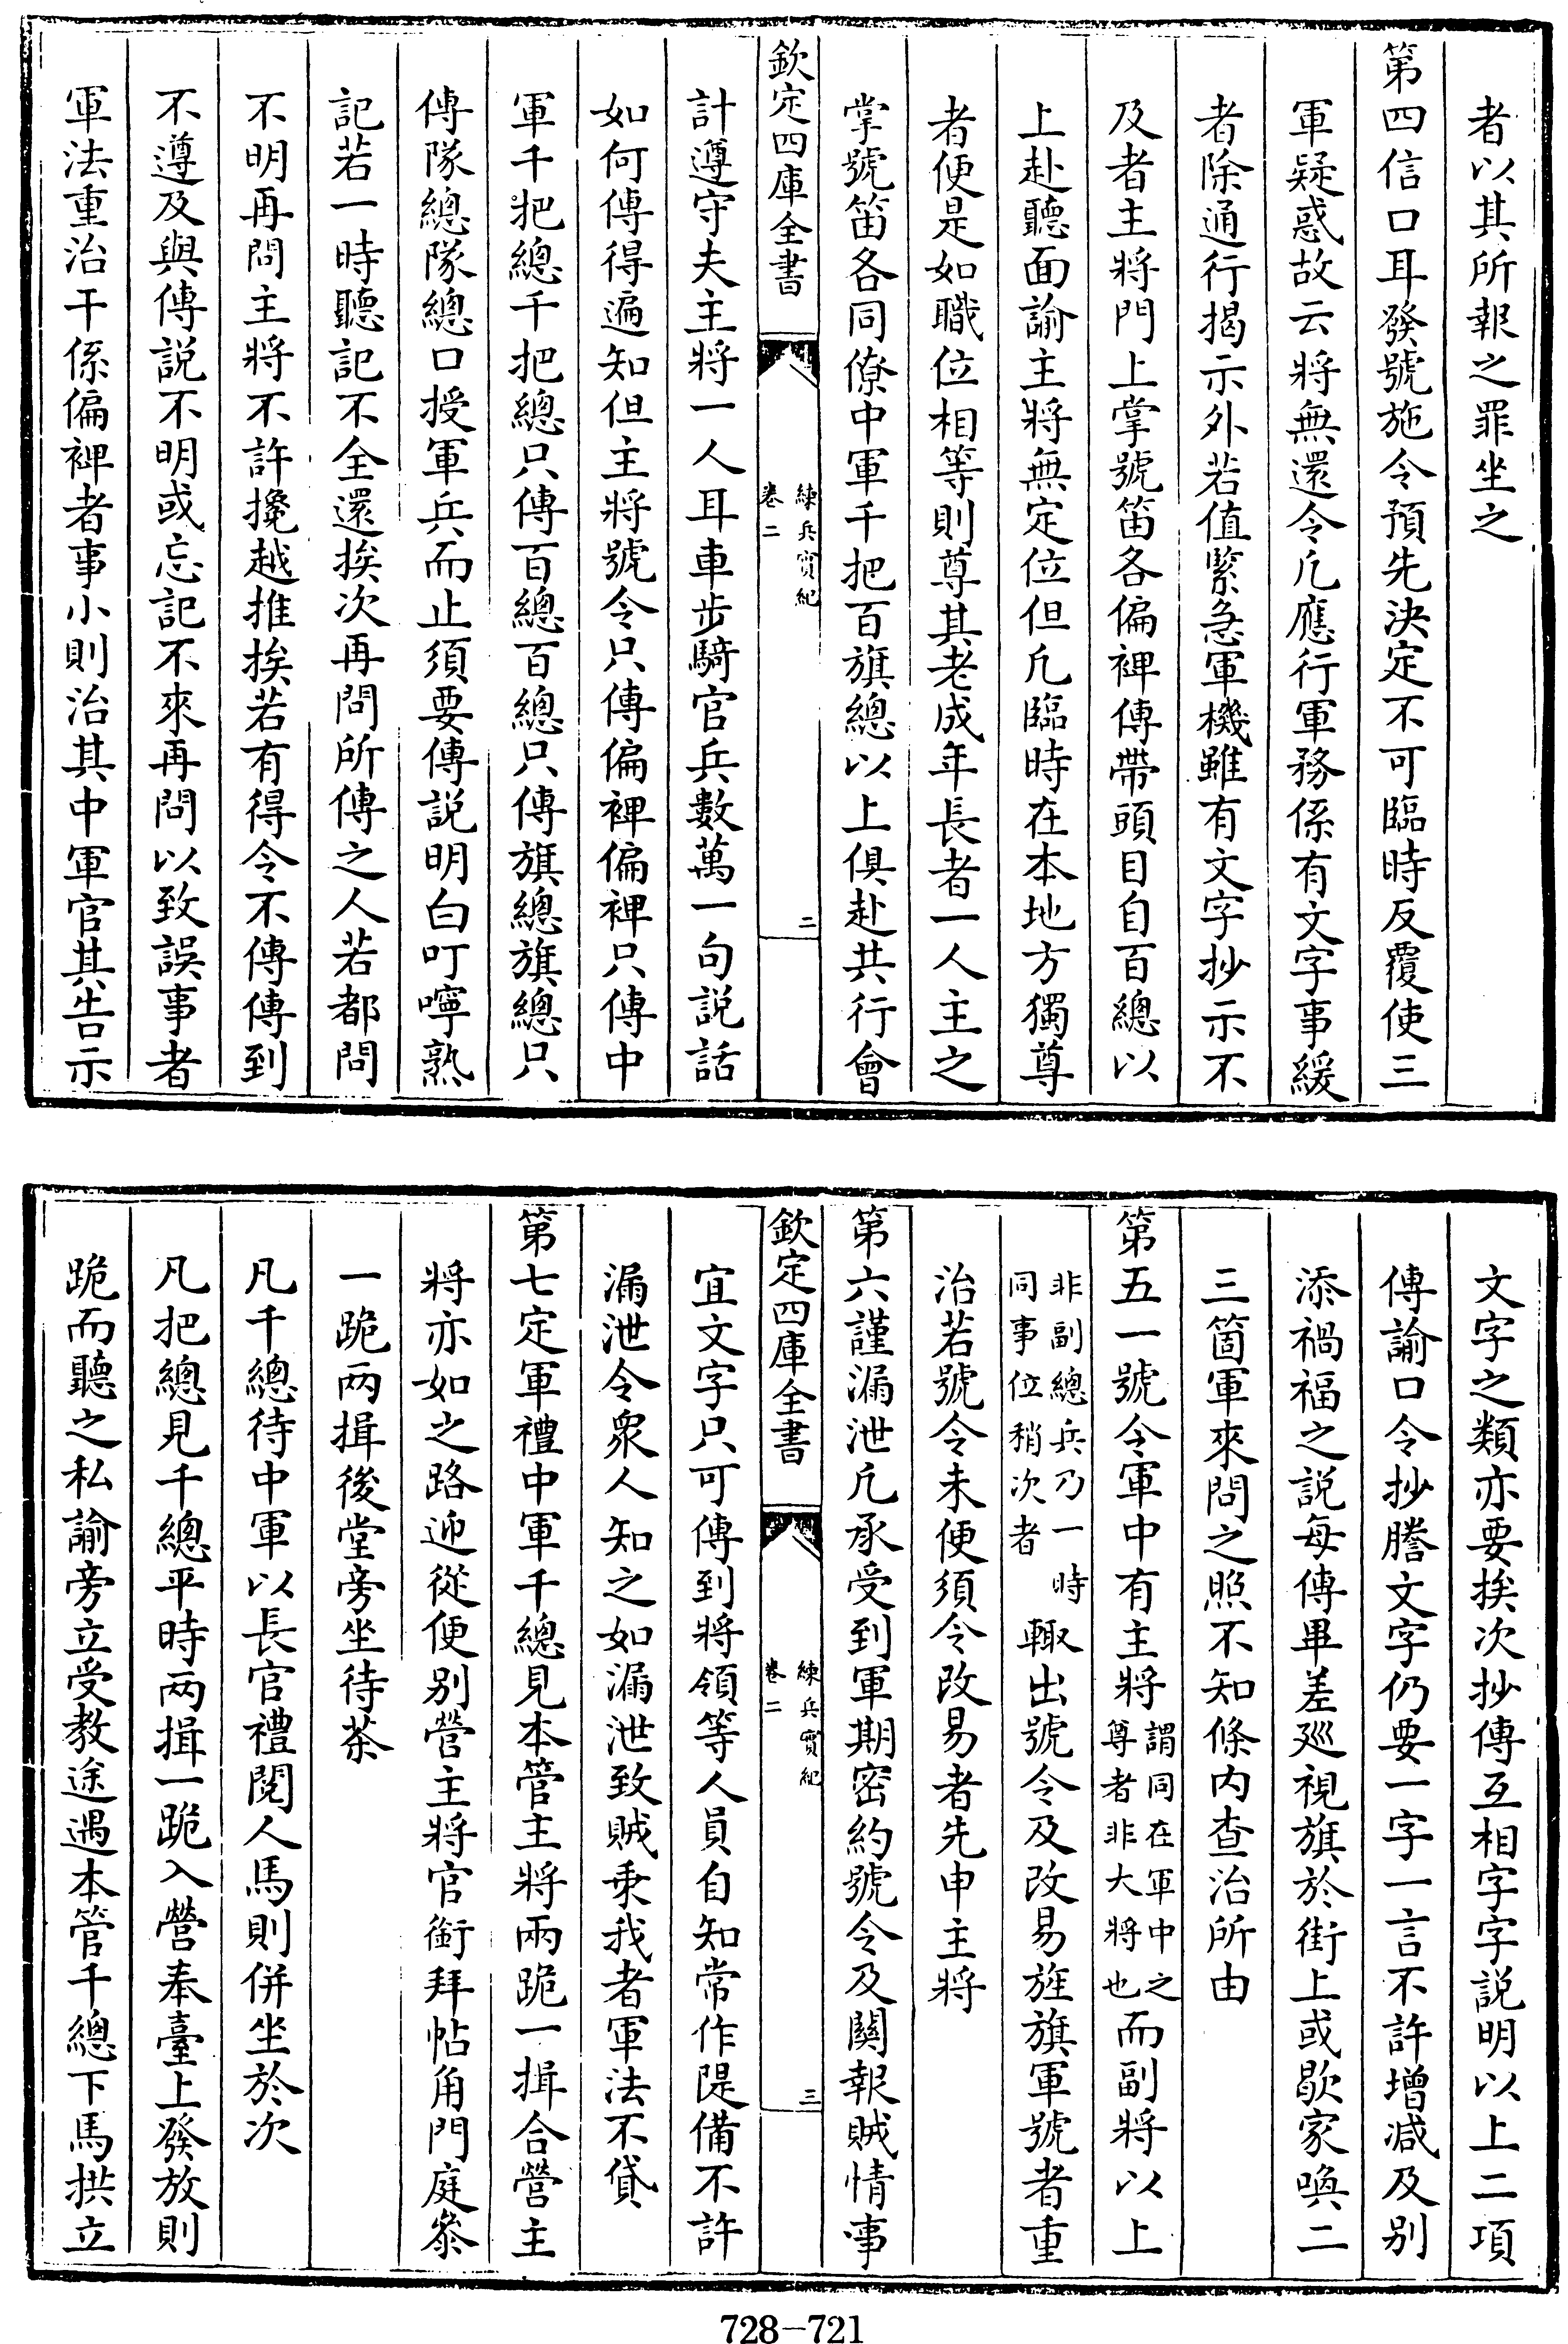 者以其所報之罪坐之
第四信口耳發號施令預先決定不可臨時反覆使三
軍疑惑故云將無還令凢應行軍務係有文字事緩
者除通行揭示外若值緊急軍機雖有文字抄示不
及者主將門上掌號笛各偏裨傳帶頭目自百總以
上赴聽面諭主將無定位但凢臨時在本地方獨尊
者便是如職位相等則尊其老成年長者一人主之
掌號笛各同僚中軍千把百旗總以上俱赴共行會
欽定四庫全書
練兵實紀
卷二
二
計遵守夫主將一人耳車步騎官兵數萬一句説話
如何傳得遍知但主將號令只傳偏裨偏裨只傳中
軍千把總千把總只傳百總百總只傳旗總旗總只
傳隊總隊總口授軍兵而止須要傳説明白叮嚀熟
記若一時聽記不全還挨次再問所傳之人若都問
不明再問主將不許攙越推挨若有得令不傳傳到
不遵及與傳説不明或忘記不來再問以致誤事者
軍法重治干係偏裨者事小則治其中軍官其告示
文字之類亦要挨次抄傳互相字字説明以上二項
傳諭口令抄謄文字仍要一字一言不許增減及别
添禍福之説每傳畢差廵視旗於街上或歇家喚二
三箇軍來問之照不知條内查治所由
第五一號令軍中有主將謂同在軍中之尊者非大將也而副將以上
非副總兵乃一時同事位稍次者輙出號令及改易旌旗軍號者重
治若號令未便須令改易者先申主將
第六謹漏泄凢承受到軍期密約號令及關報賊情事
欽定四庫全書
練兵實紀
卷二
三
宜文字只可傳到將領等人員自知常作隄備不許
漏泄令衆人知之如漏泄致賊乗我者軍法不貸
第七定軍禮中軍千總見本管主將兩跪一揖合營主
將亦如之路迎從便别營主將官銜拜帖角門庭叅
一跪两揖後堂旁坐待茶
凡千總待中軍以長官禮閱人馬則併坐於次
凡把總見千總平時两揖一跪入營奉臺上發放則
跪而聽之私諭旁立受教途遇本管千總下馬拱立
728-721